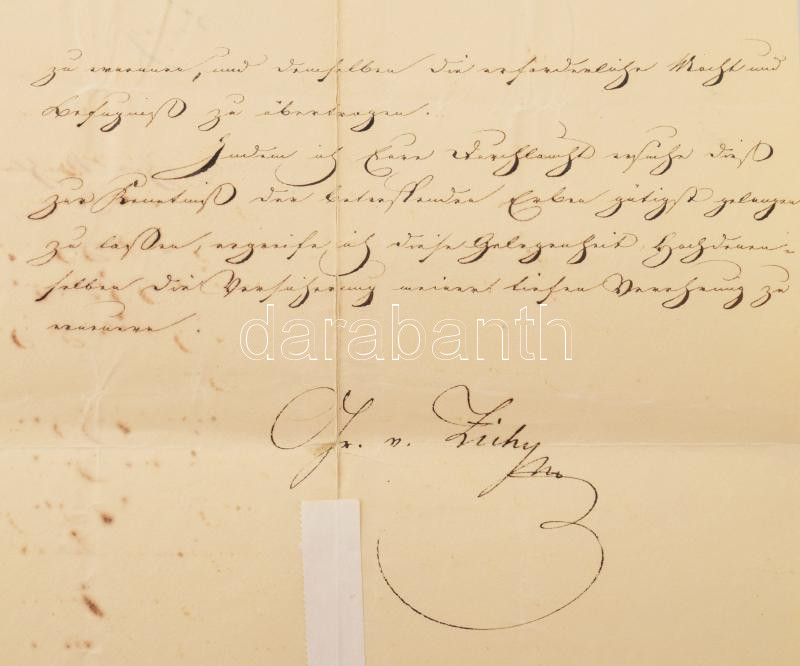 zu ernennen, und demselben die erforderliche Macht und
Befugniß zu übertragen.
Indem ich Eure Durchlaucht ersuche dieß
zur Kenntniß der betreffenden Erben gütigst gelangen
zu lassen, ergreife ich diese Gelegenheit Hochdenen-
selben die Versicherung meiner tiefen Verehrung zu
erneuern.
darabanth
Gr. v. Zichy